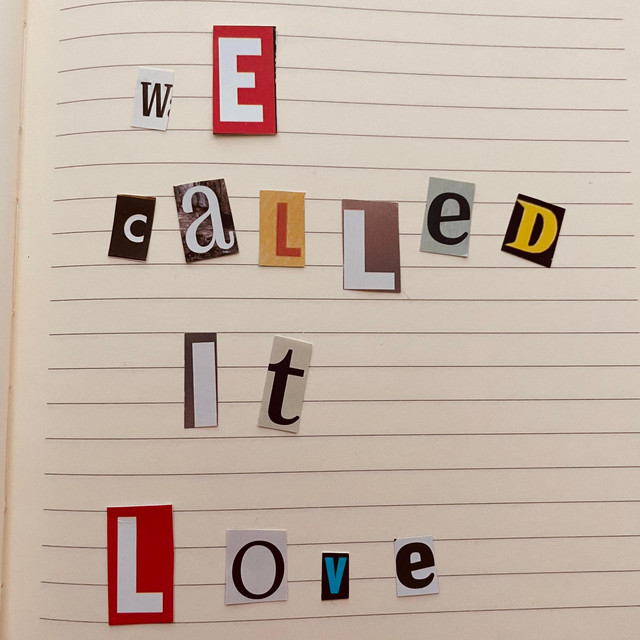 wE
caLLeD
It
Love